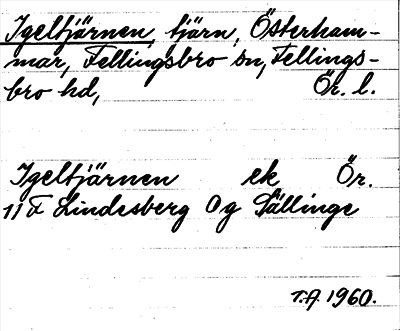 Igeltjärnen, tjärn, Österham-
mar, Fellingsbro sn, Fellings-
bro hd, Ör. l.
Igeltjärnen ek Ör.
11 F Lindesberg Og Sällinge
T.A. 1960.